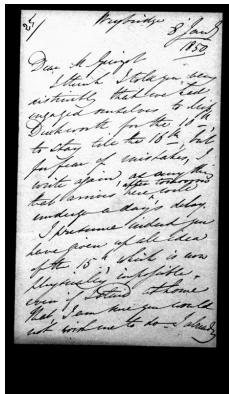 Weybridge
8 Jany
1850
Dear M. Guizot
I think I told you very
distinctly that we had
engaged ourselves to Miss
Duckworth for the 10th
to stay till the 16th, but
for fear of mistakes, I
write again, as any thing
that arrives here
after tomorrow
undergo a day's delay.
I presume indeed you
have given up all idea
of the 15th which is now
physically impossible,
even if I stayed at home
that, I am sure you would
not wish me to do